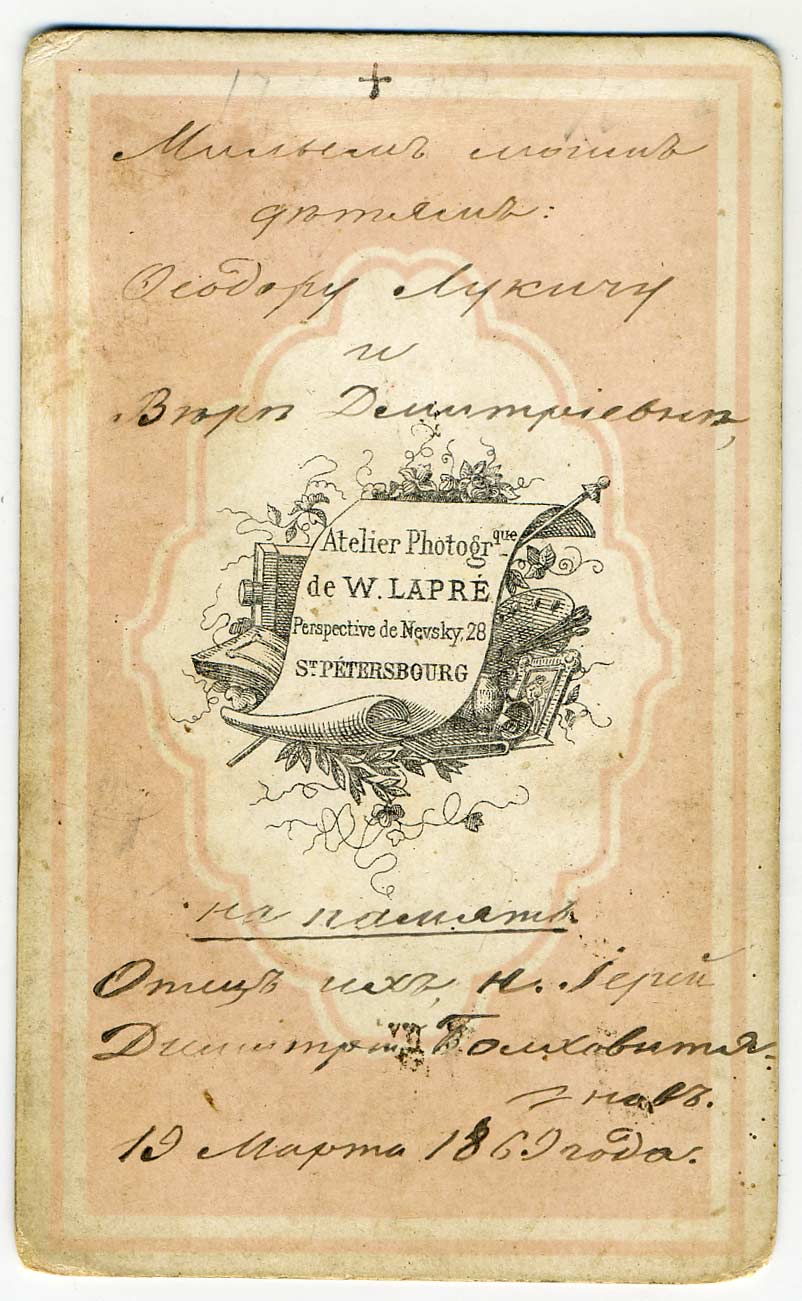 Милымъ моимъ
дѣтямъ:
Ѳеодору Лукичу
и
Вѣрѣ Димитріевнѣ,
Atelier Photogr^que
de W. LAPRÉ
Perspective de Nevsky, 28
ST PÉTERSBOURG
на память
Отецъ ихъ, н. Іерей
Димитрій Болховитя-
новъ.
19 Марта 1869 года.